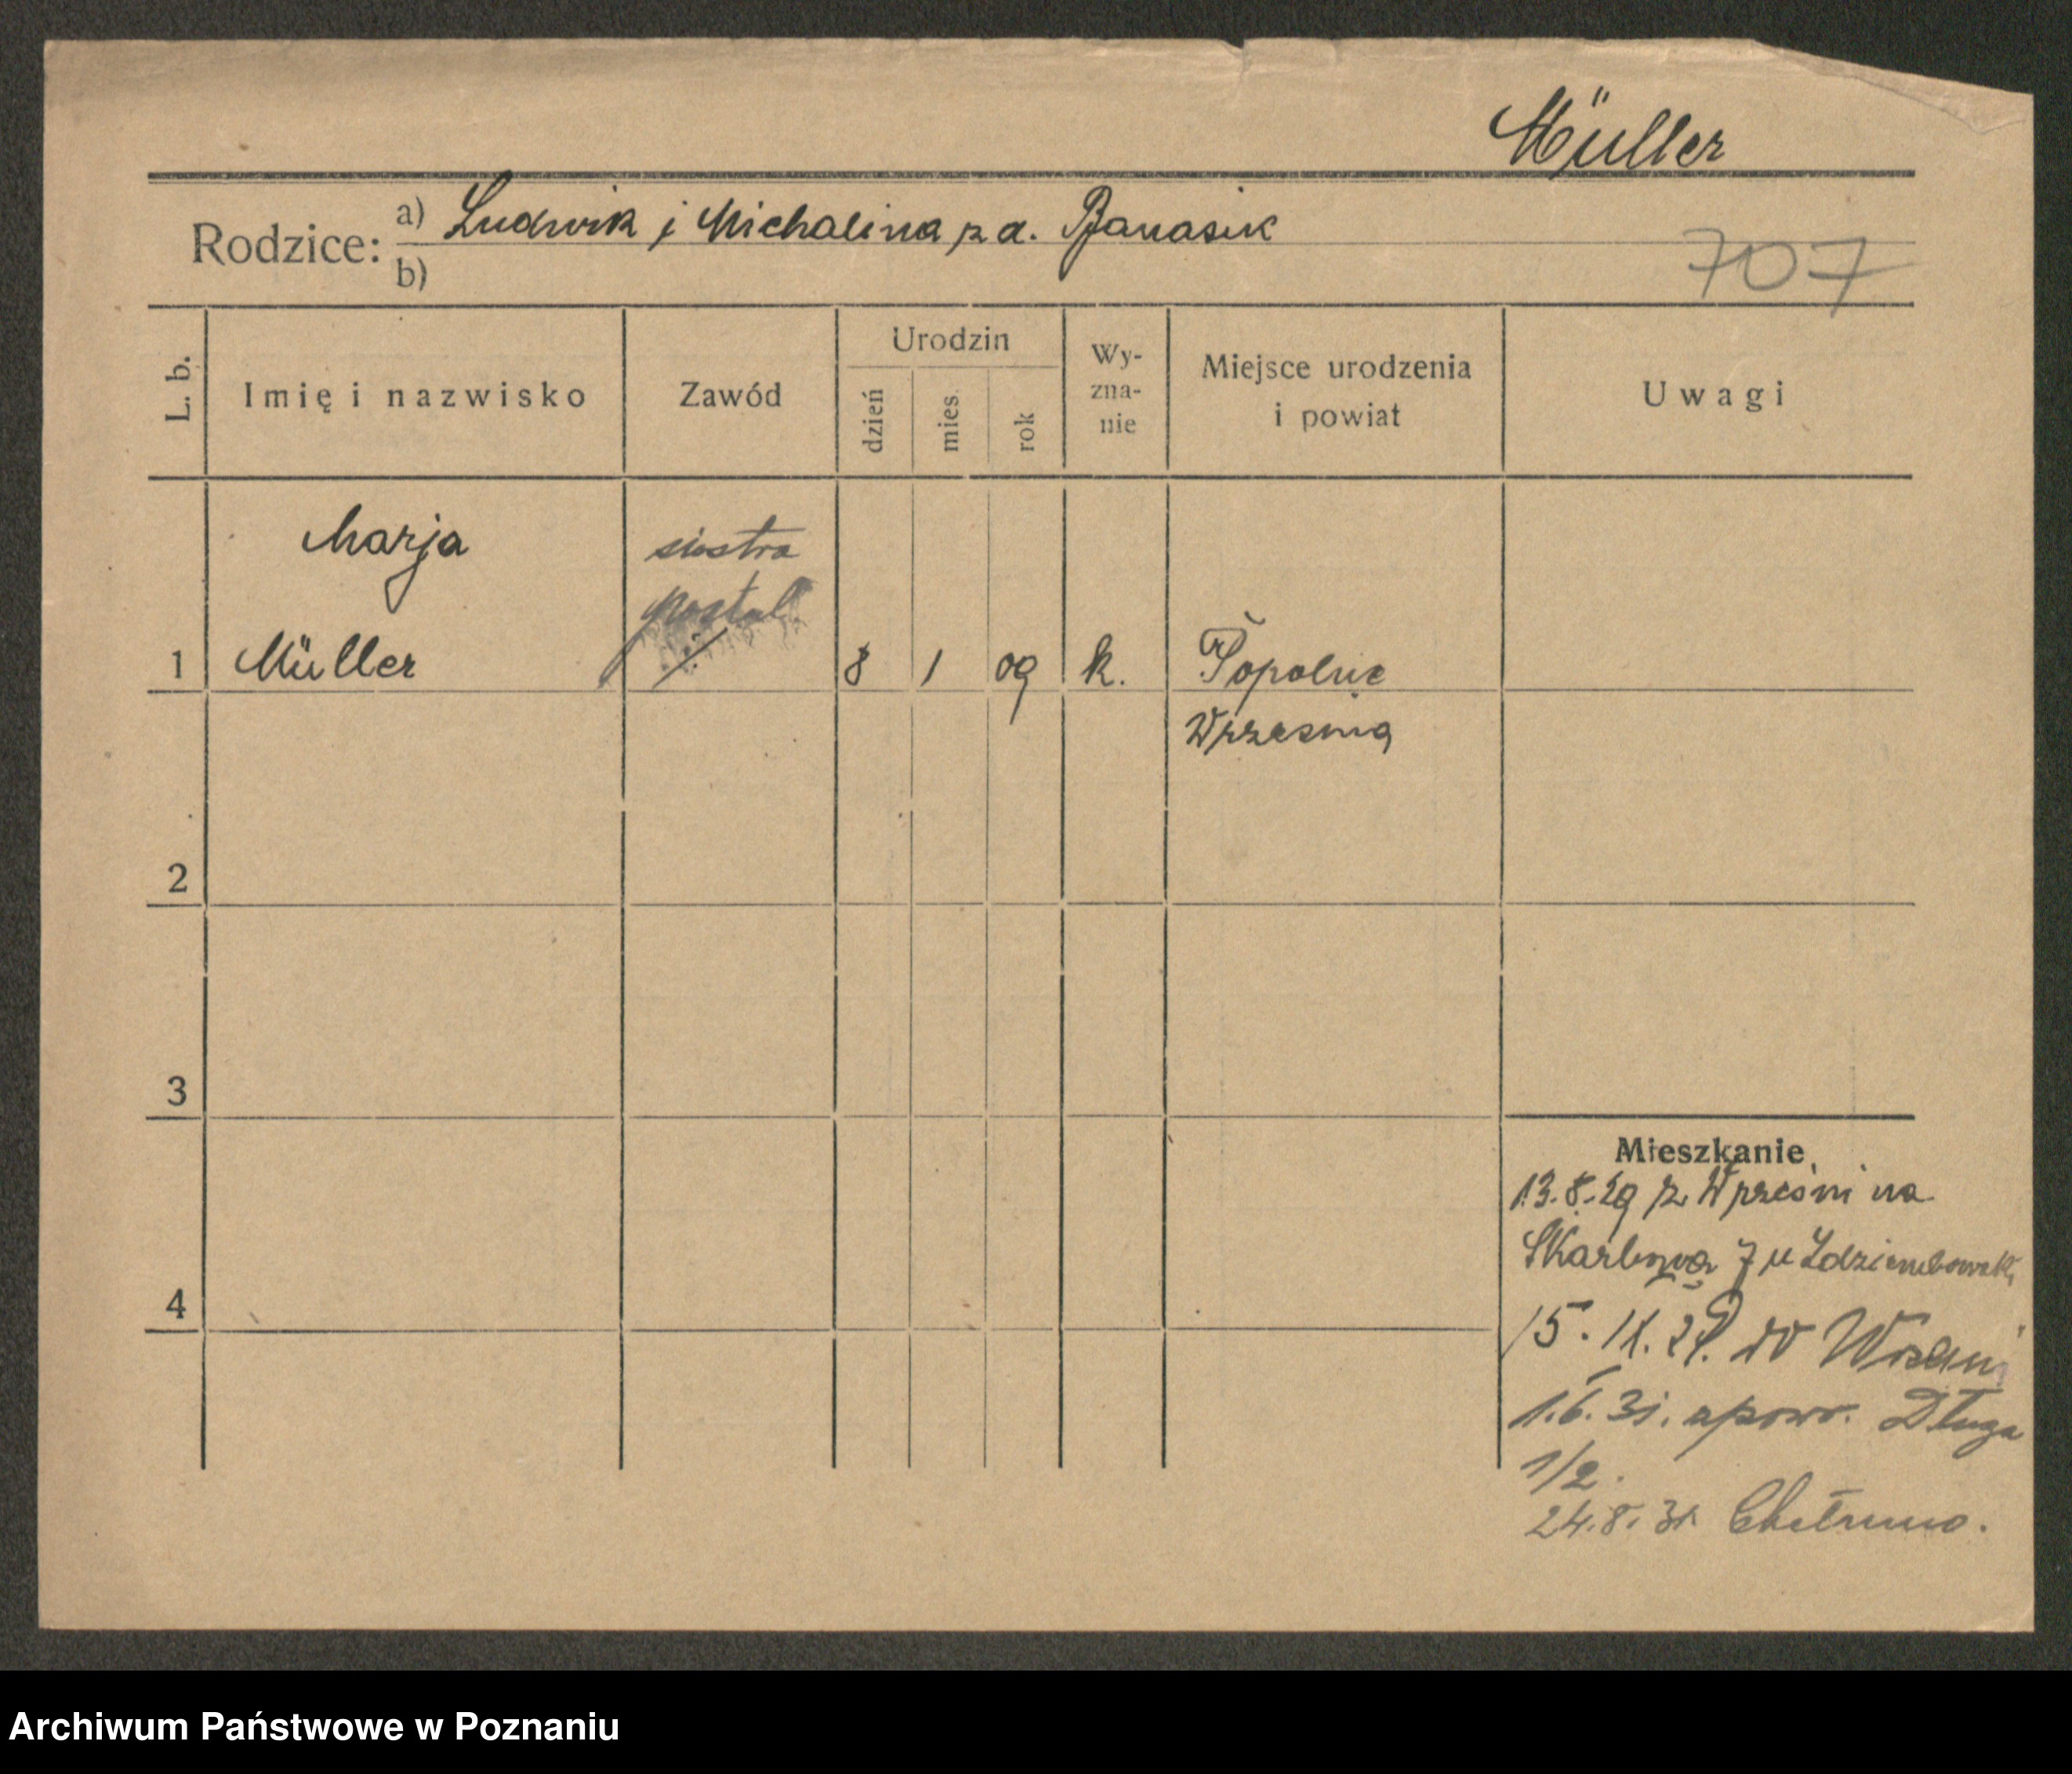 Müller
Rodzice: a) Ludwik i Michalina z d. Banasik
b)
707
L. b.
Imię i nazwisko
Zawód
Urodzin
dzień
mies.
rok
Wy-
zna-
nie
Miejsce urodzenia
i powiat
Uwagi
Marja
siostra
postul.
1 Müller 8 1 09 k.
Września
2
3
4
Mieszkanie
13.8.29 z Wrześni na
Skarbową 7 u
15. 11. 29. do Wrześni
1.6.31. zpow. Długa
1/2.
24.8.31 Chełmno.
Archiwum Państwowe w Poznaniu